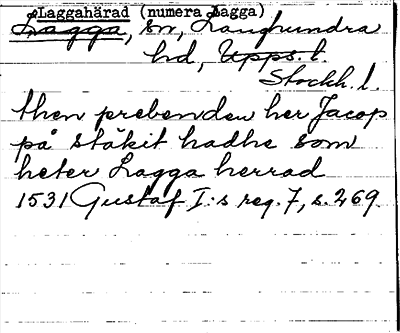 Laggahärad (numera Lagga)
Lagga, sn, Langhundra
hd, Upps. l.
Stockh. l.
then prebenden her Jacop
på stäkit hadhe som
heter Lagga herrad
1531 Gustaf I:s reg. 7, s. 269.